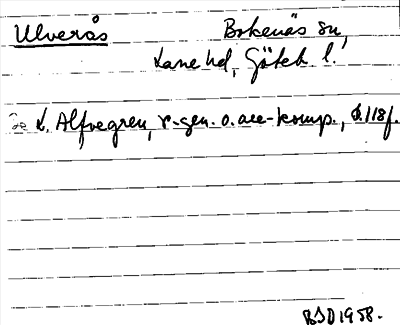 Ulverås Bokenäs sn,
Lane hd, Göteb l.
Se L. Alfvegren, r-gen. o. ack-komp., s. 118 f.
BSD 1958.